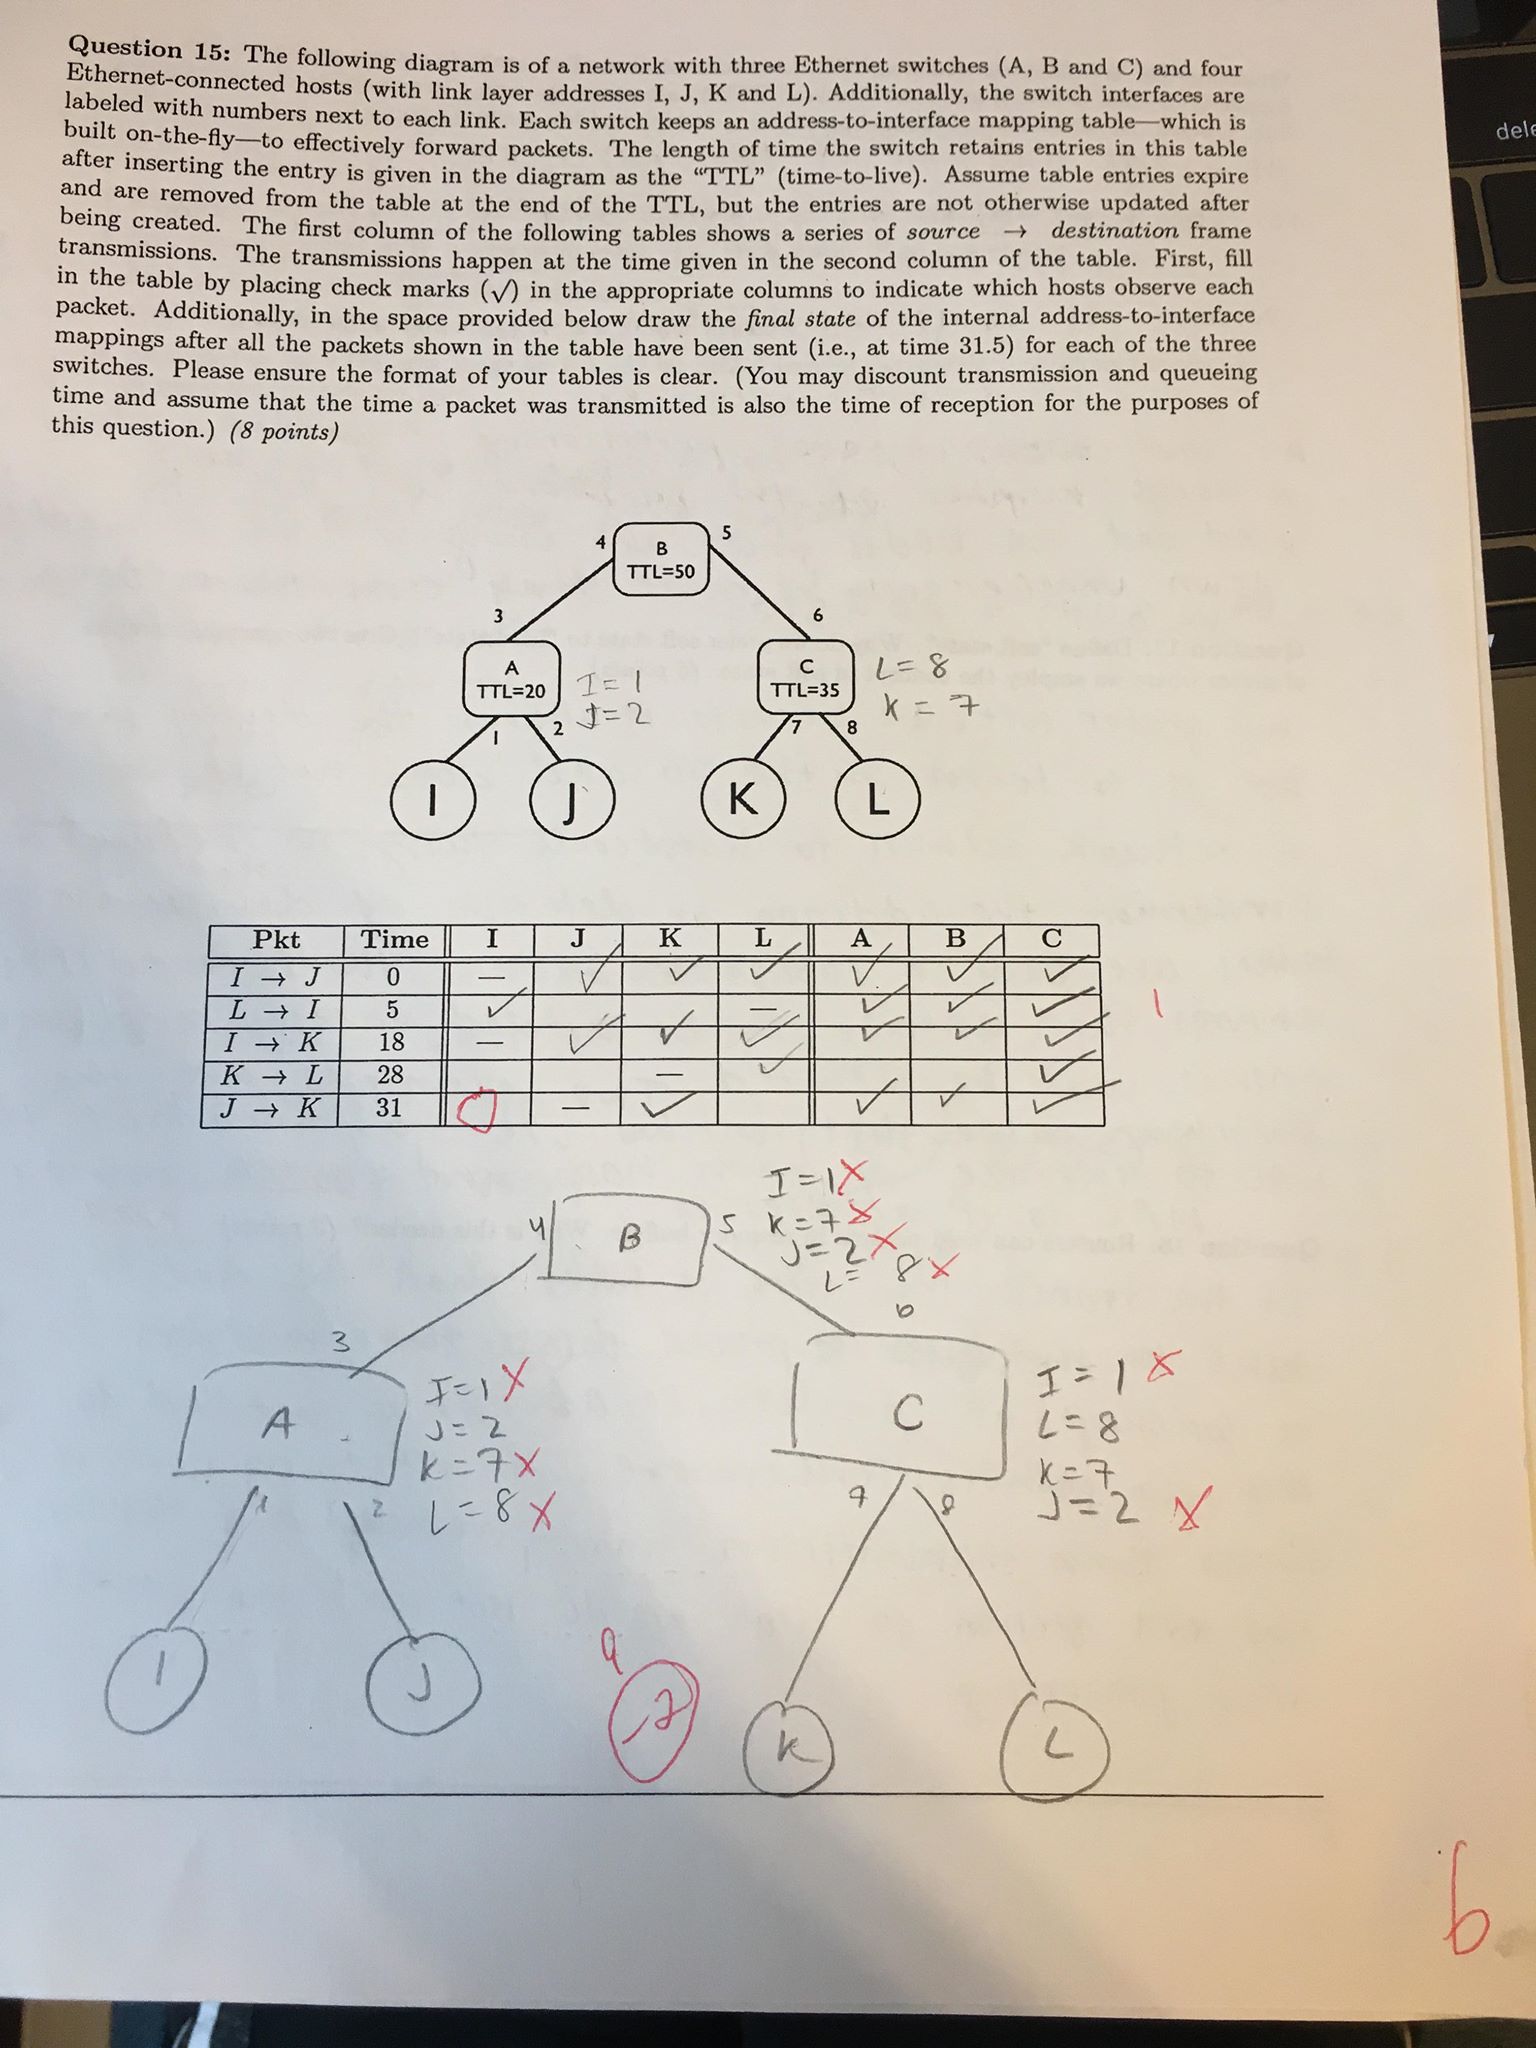 Question 15: The following diagram is of a network with three Ethernet switches (A, B and C) and four
Ethernet-connected hosts (with link layer addresses I, J, K and L). Additionally, the switch interfaces are
labeled with numbers next to each link. Each switch keeps an address-to-interface mapping table—which is
built on-the-fly—to effectively forward packets. The length of time the switch retains entries in this table
after inserting the entry is given in the diagram as the “TTL” (time-to-live). Assume table entries expire
and are removed from the table at the end of the TTL, but the entries are not otherwise updated after
being created. The first column of the following tables shows a series of source → destination frame
transmissions. The transmissions happen at the time given in the second column of the table. First, fill
in the table by placing check marks (✓) in the appropriate columns to indicate which hosts observe each
packet. Additionally, in the space provided below draw the final state of the internal address-to-interface
mappings after all the packets shown in the table have been sent (i.e., at time 31.5) for each of the three
switches. Please ensure the format of your tables is clear. (You may discount transmission and queueing
time and assume that the time a packet was transmitted is also the time of reception for the purposes of
this question.) (8 points)
4 B 5
TTL=50
3 6
A C L=8
TTL=20 I=1 TTL=35
K=7
1 2 J=2 7 8
I J K L
Pkt Time I J K L A B C
I → J 0 — ✓ ✓ ✓ ✓ ✓ ✓
L → I 5 ✓ — ✓ ✓ ✓ 1
I → K 18 — ✓ ✓ ✓ ✓ ✓ ✓
K → L 28 — ✓ ✓
J → K 31 — ✓ ✓ ✓ ✓
I=1 X
4 B 5 K=7 X
J=2 X
L= 8 X
3 6
A I=1 X C I=1 X
J=2 L=8
K=7 X K=7
L=8 X J=2 X
1 2 8
I J -2 K L
6